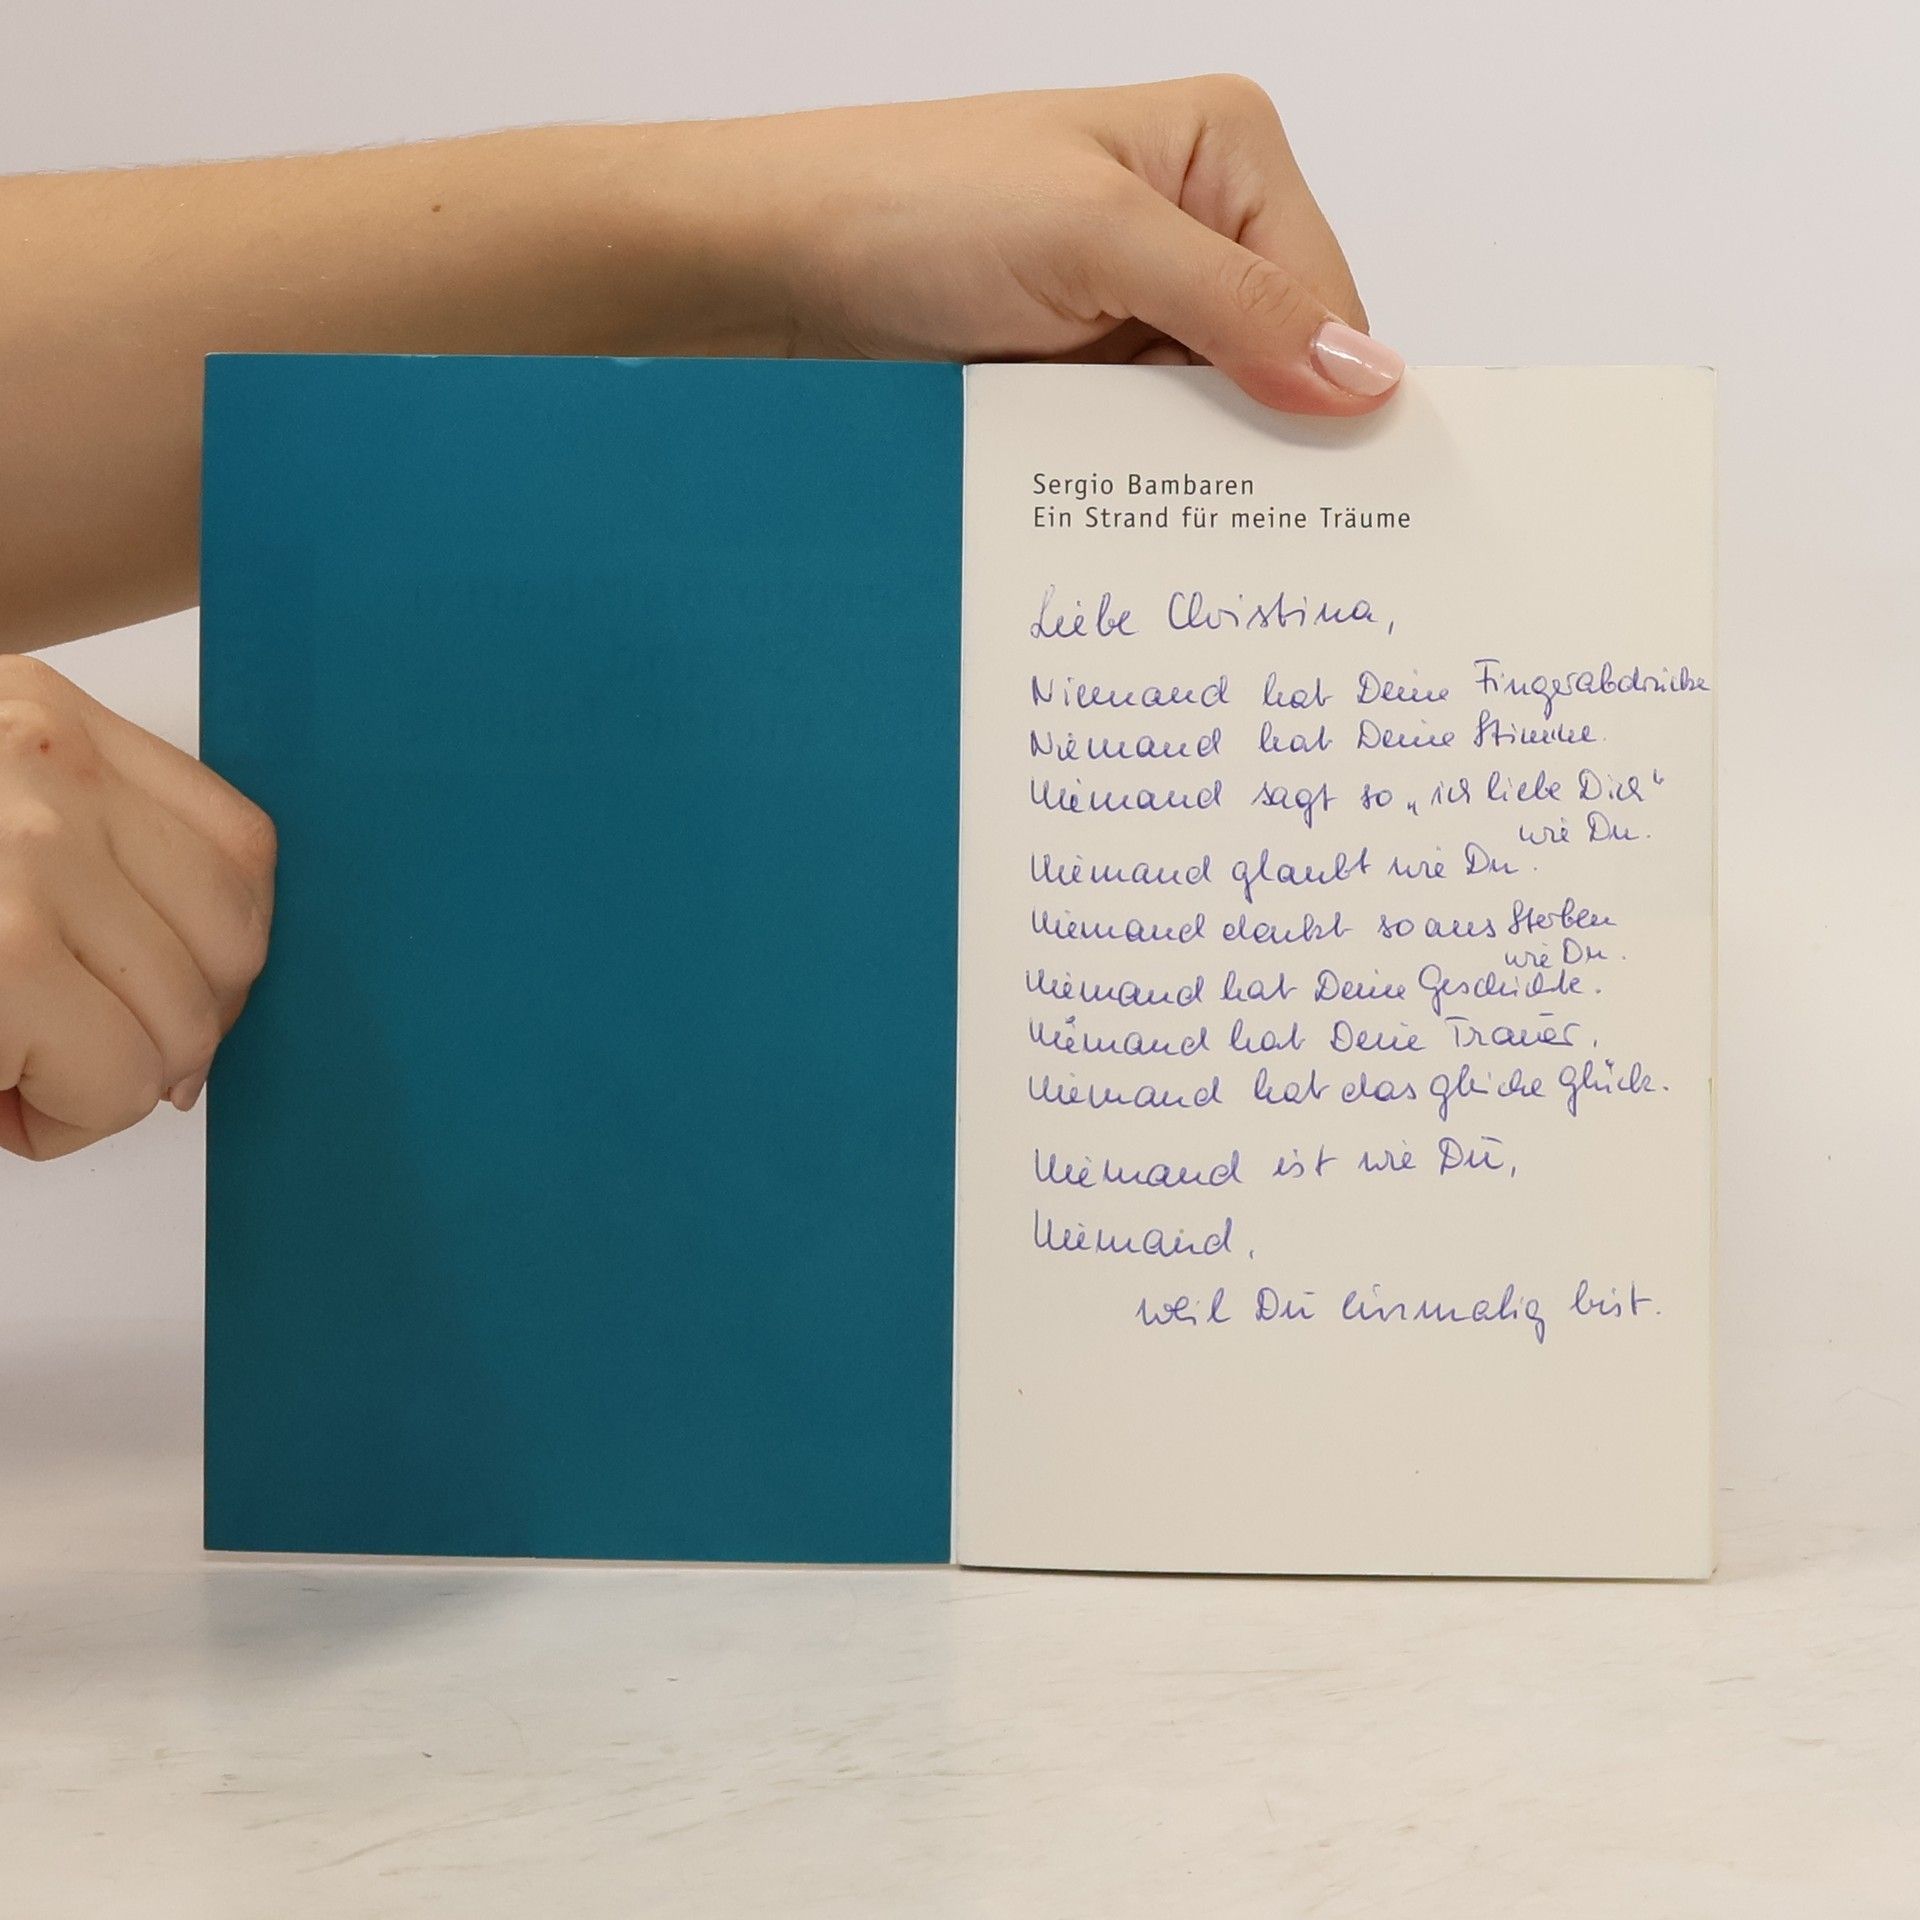 Sergio Bambaren
Ein Strand für meine Träume
Liebe Christina,
Niemand hat Deine Fingerabdrücke
Niemand hat Deine Stimme.
Niemand sagt so „ich liebe Dich“
wie Du.
Niemand glaubt wie Du.
Niemand denkt so ans Sterben
wie Du.
Niemand hat Deine Geschichte.
Niemand hat Deine Trauer,
Niemand hat das gleiche Glück.
Niemand ist wie Du,
Niemand,
weil Du einmalig bist.